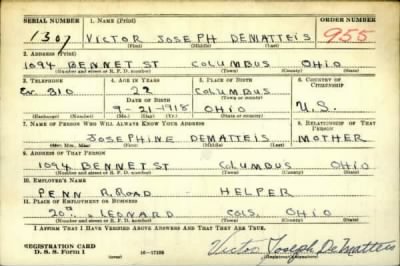 SERIAL NUMBER 1. NAME (Print) ORDER NUMBER
1307 VICTOR JOSEPH DEMATTEIS 955
(First) (Middle) (Last)
2. ADDRESS (Print)
1094 BENNET ST COLUMBUS OHIO
(Number and street or R. F. D. number) (Town) (County) (State)
3. TELEPHONE 4. AGE IN YEARS 5. PLACE OF BIRTH 6. COUNTRY OF CITIZENSHIP
310 22 COLUMBUS
DATE OF BIRTH (Town or county)
9-21-1918 OHIO U.S.
(Exchange) (Number) (Mo.) (Day) (Yr.) (State or country)
7. NAME OF PERSON WHO WILL ALWAYS KNOW YOUR ADDRESS 8. RELATIONSHIP OF THAT PERSON
JOSEPHINE DEMATTEIS MOTHER
(Mr., Mrs., Miss) (First) (Middle) (Last)
9. ADDRESS OF THAT PERSON
1094 BENNET ST COLUMBUS OHIO
(Number and street or R. F. D. number) (Town) (County) (State)
10. EMPLOYER'S NAME
PENN R. ROAD HELPER
11. PLACE OF EMPLOYMENT OR BUSINESS
20 LEONARD COLS. OHIO
(Number and street or R. F. D. number) (Town) (County) (State)
I AFFIRM THAT I HAVE VERIFIED ABOVE ANSWERS AND THAT THEY ARE TRUE.
REGISTRATION CARD
D. S. S. Form 1 (over) 16—17105 Victor Joseph DeMatteis
(Registrant's signature)